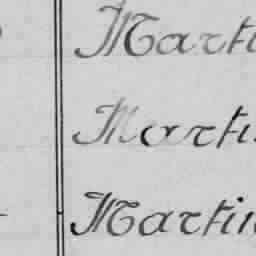 Marti
Marti
Martin